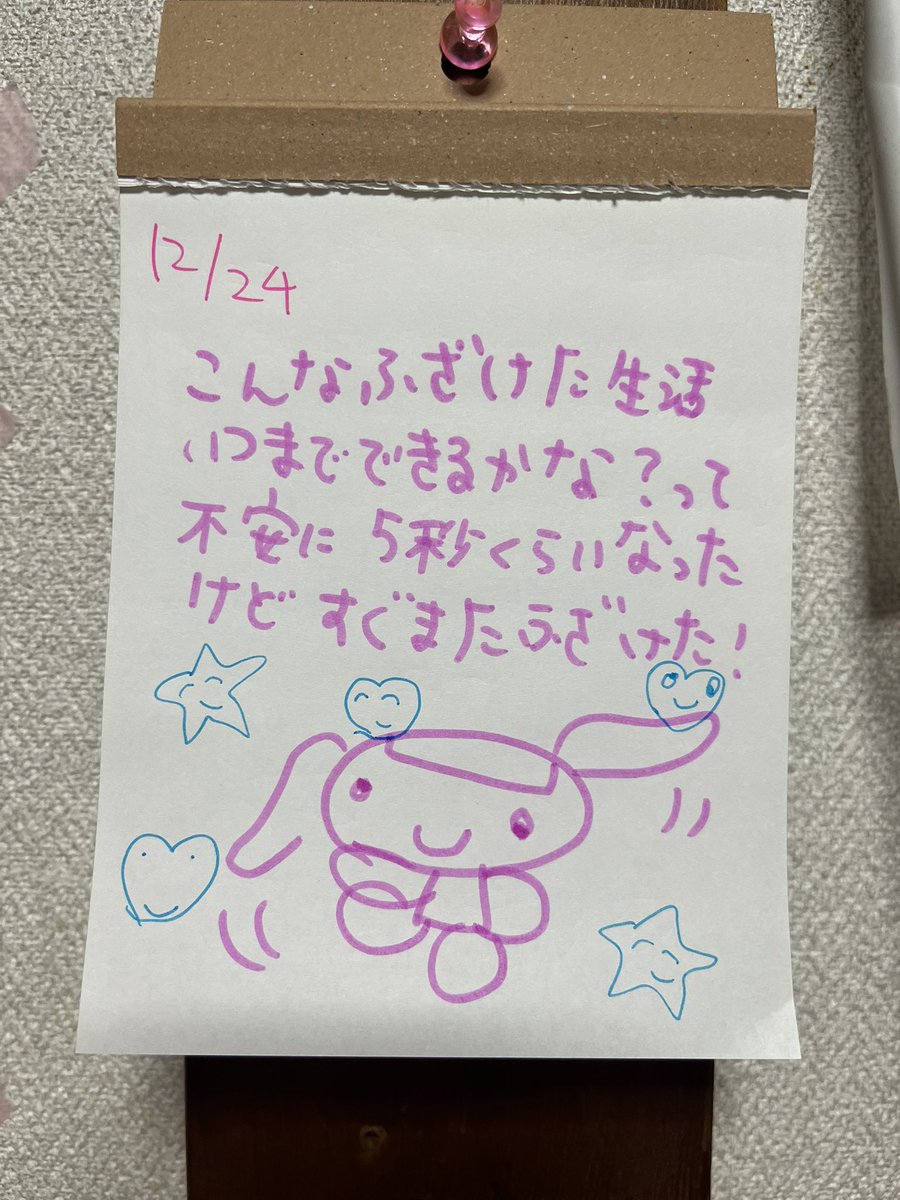 12/24
こんなふざけた生活
いつまでできるかな？って
不安に5秒くらいなった
けどすぐまたふざけた！